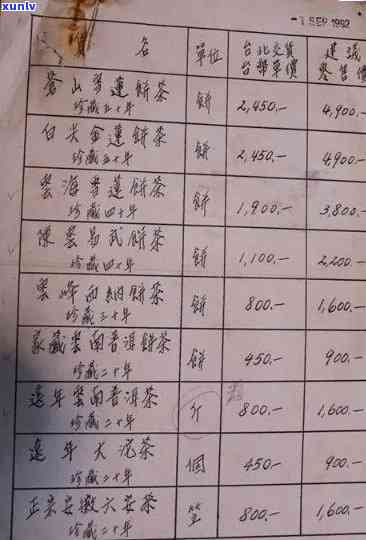 xunlv
-1 SEP 1992
名 單位 台北交貨 台幣單價 建議 零售價
雪蓮餅茶 餅 2,450.- 4,900.-
珍藏五十年
白尖金蓮餅茶 餅 2,450.- 4,900.-
珍藏五十年
雲海雪蓮餅茶 餅 1,900.- 3,800.-
珍藏四十年
陳雲易武餅茶 餅 1,100.- 2,200.-
珍藏四十年
雲峰西納餅茶 餅 800.- 1,600.-
珍藏三十年
家藏雲南普洱餅茶 餅 450.- 900.-
珍藏二十年
遠年雲南普洱茶 斤 800.- 1,600.-
珍藏二十年
遠年大沱茶 個 450.- 900.-
珍藏二十年
正宗安徽六安茶 800.- 1,600.-
珍藏二十年
xunlv